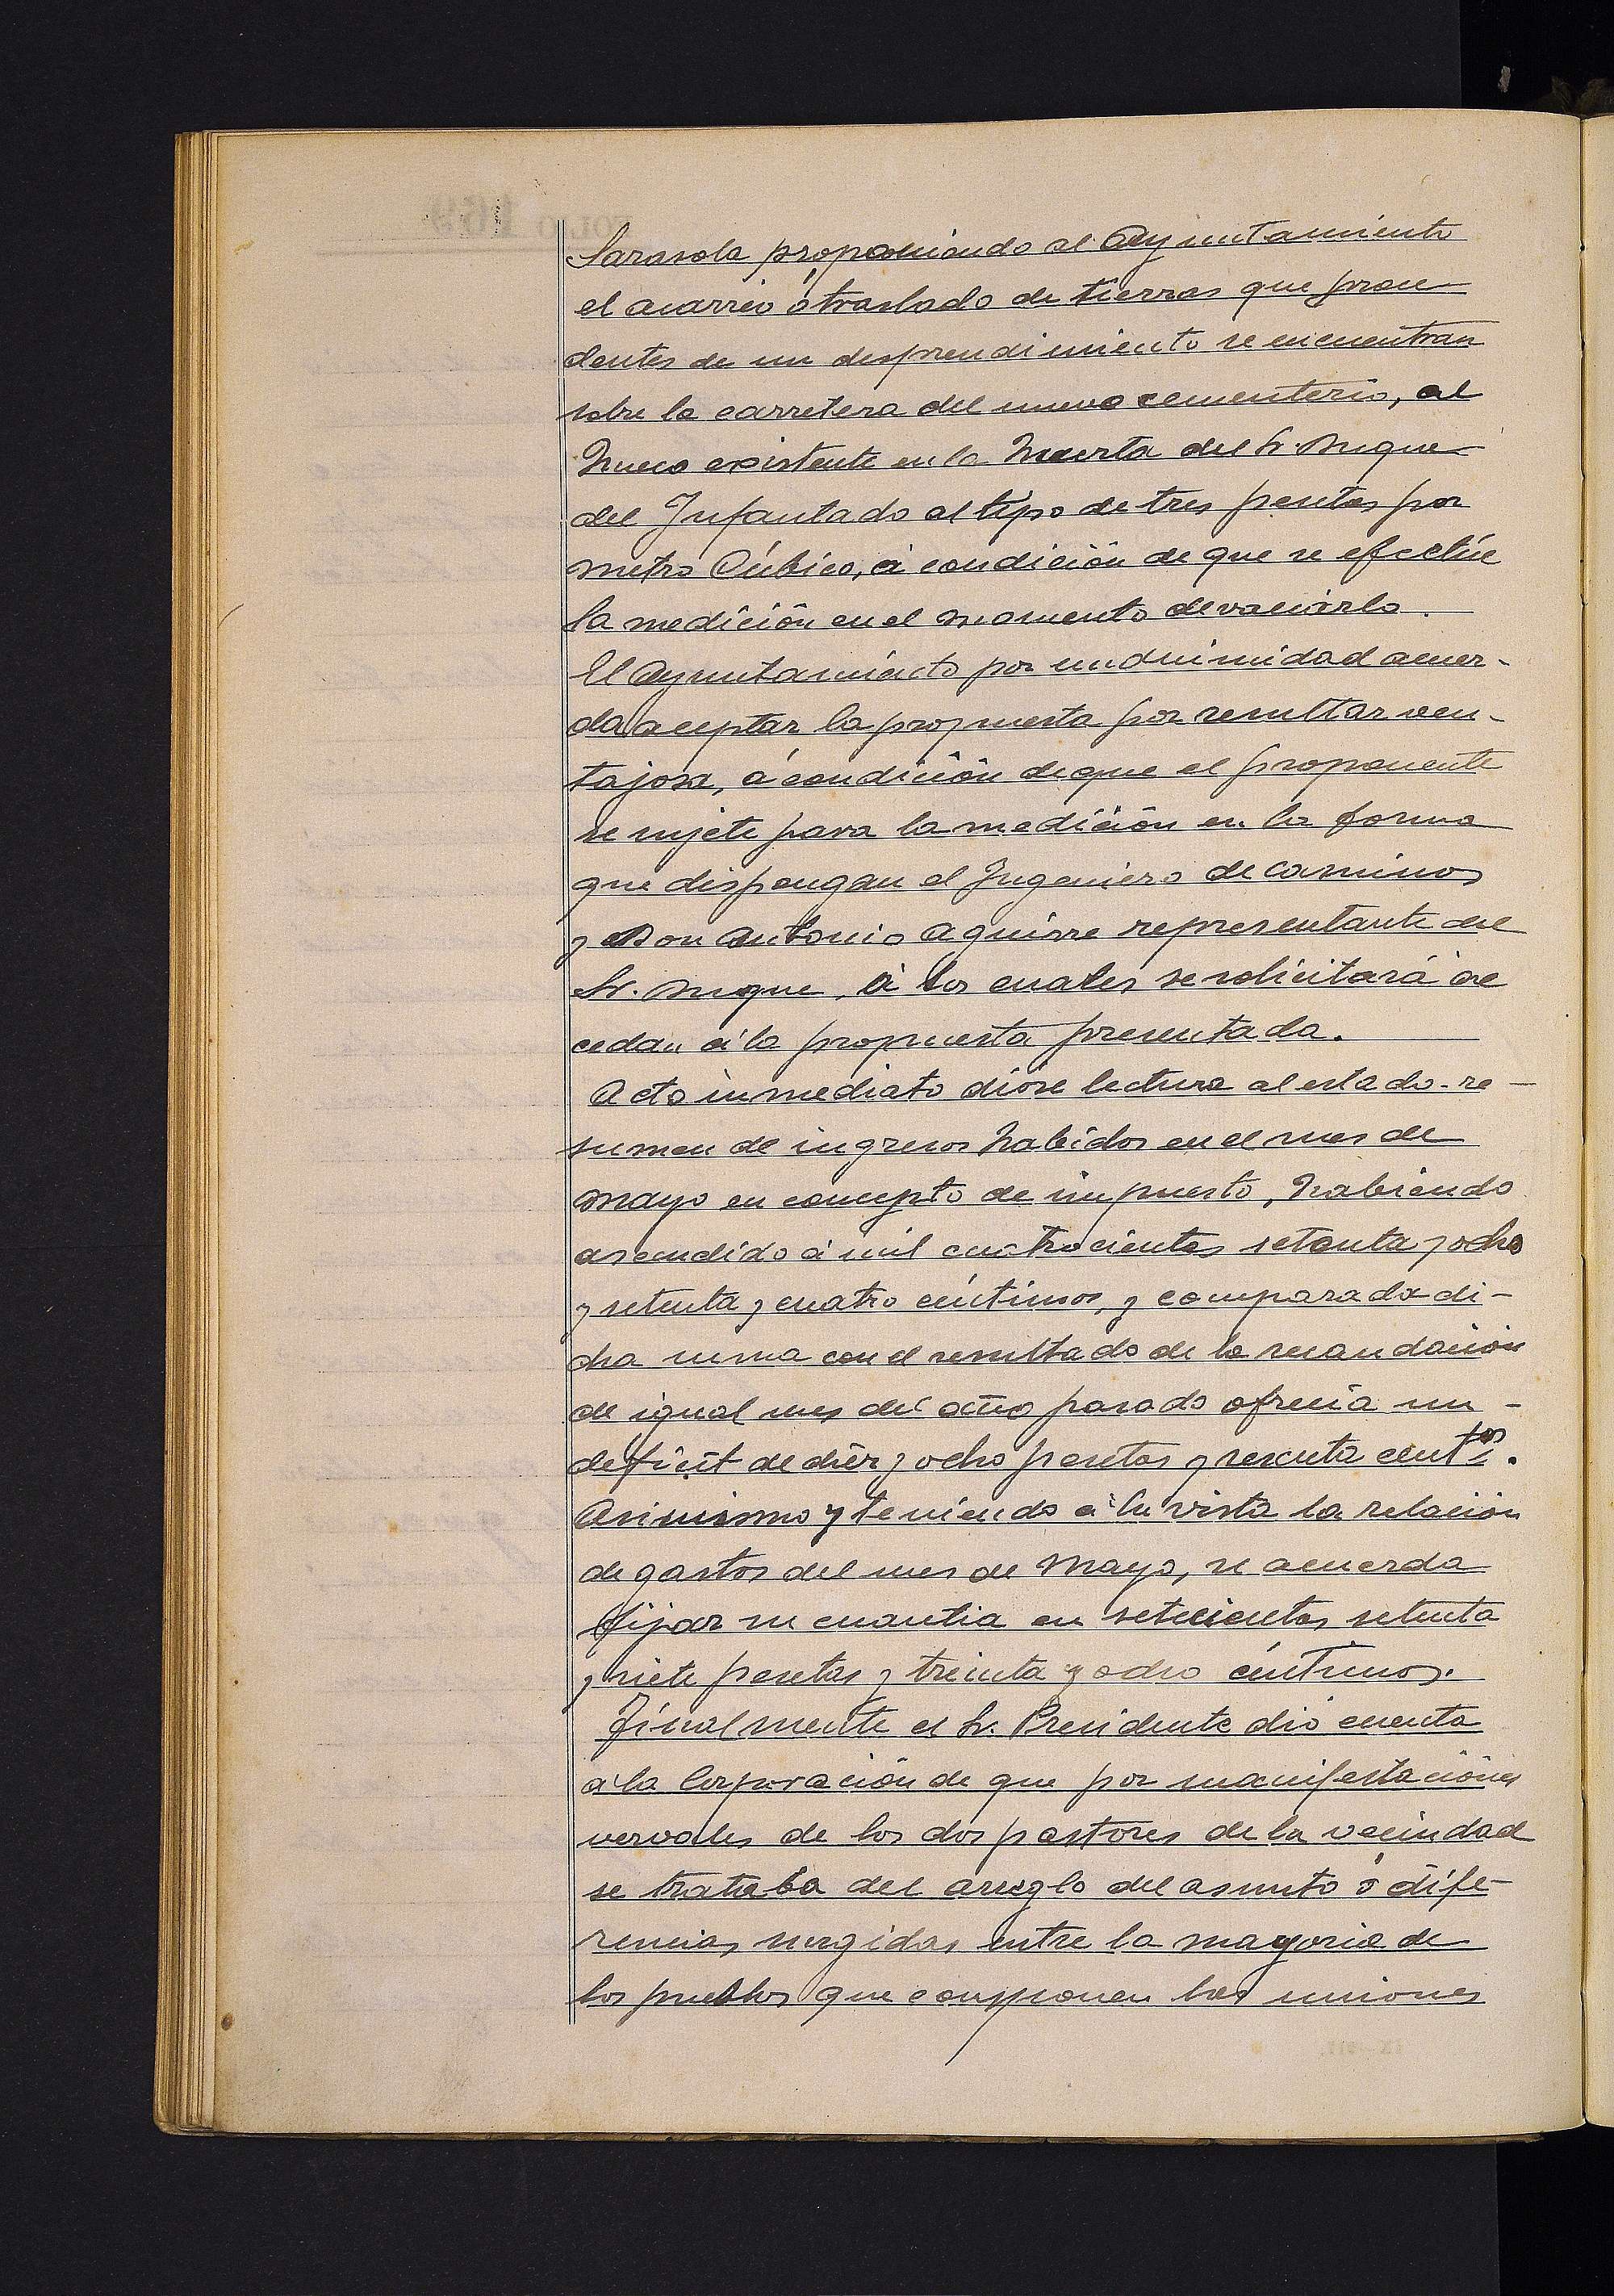 Sarasola proponiendo al Ayuntamiento
el acarreo ó traslado de tierras que proce
dentes de un desprendimiento se encuentran
sobre la carretera del nuevo cementerio, al
hueco existente en la huerta del Sr. Duque
del Infantado al tipo de tres pesetas por
metro Cúbico, á condición de que se efectúe
la medición en el momento de vaciarlo.
El Ayuntamiento por unanimidad acuer-
da aceptar la propuesta por resultar ven-
tajosa, á condición de que el proponente
se sujete para la medición en la forma
que dispongan el Ingeniero de caminos
y Don Antonio Aguirre representante del
Sr. Duque, á los cuales se solicitará ac
cedan á la propuesta presentada.
Acto inmediato dióse lectura al estado-re-
sumen de ingresos habidos en el mes de
Mayo en concepto de impuesto, habiendo
ascendido á mil cuatrocientas setenta y ocho
y setenta y cuatro céntimos, y comparada di-
cha suma con el resultado de la recaudación
de igual mes del año pasado ofrecía un -
deficit de diez y ocho pesetas y sesenta centos.
Asimismo y teniendo á la vista la relación
de gastos del mes de Mayo, se acuerda
fijar su cuantia en setecientas setenta
y siete pesetas y treinta y ocho céntimos.
Finalmente el Sr. Presidente dió cuenta
á la Corporación de que por manifestaciones
vervales de los dos pastores de la vecindad
se trataba del arreglo del asunto ó dife-
rencias surgidas entre la mayoria de
los pueblos que componen las uniones